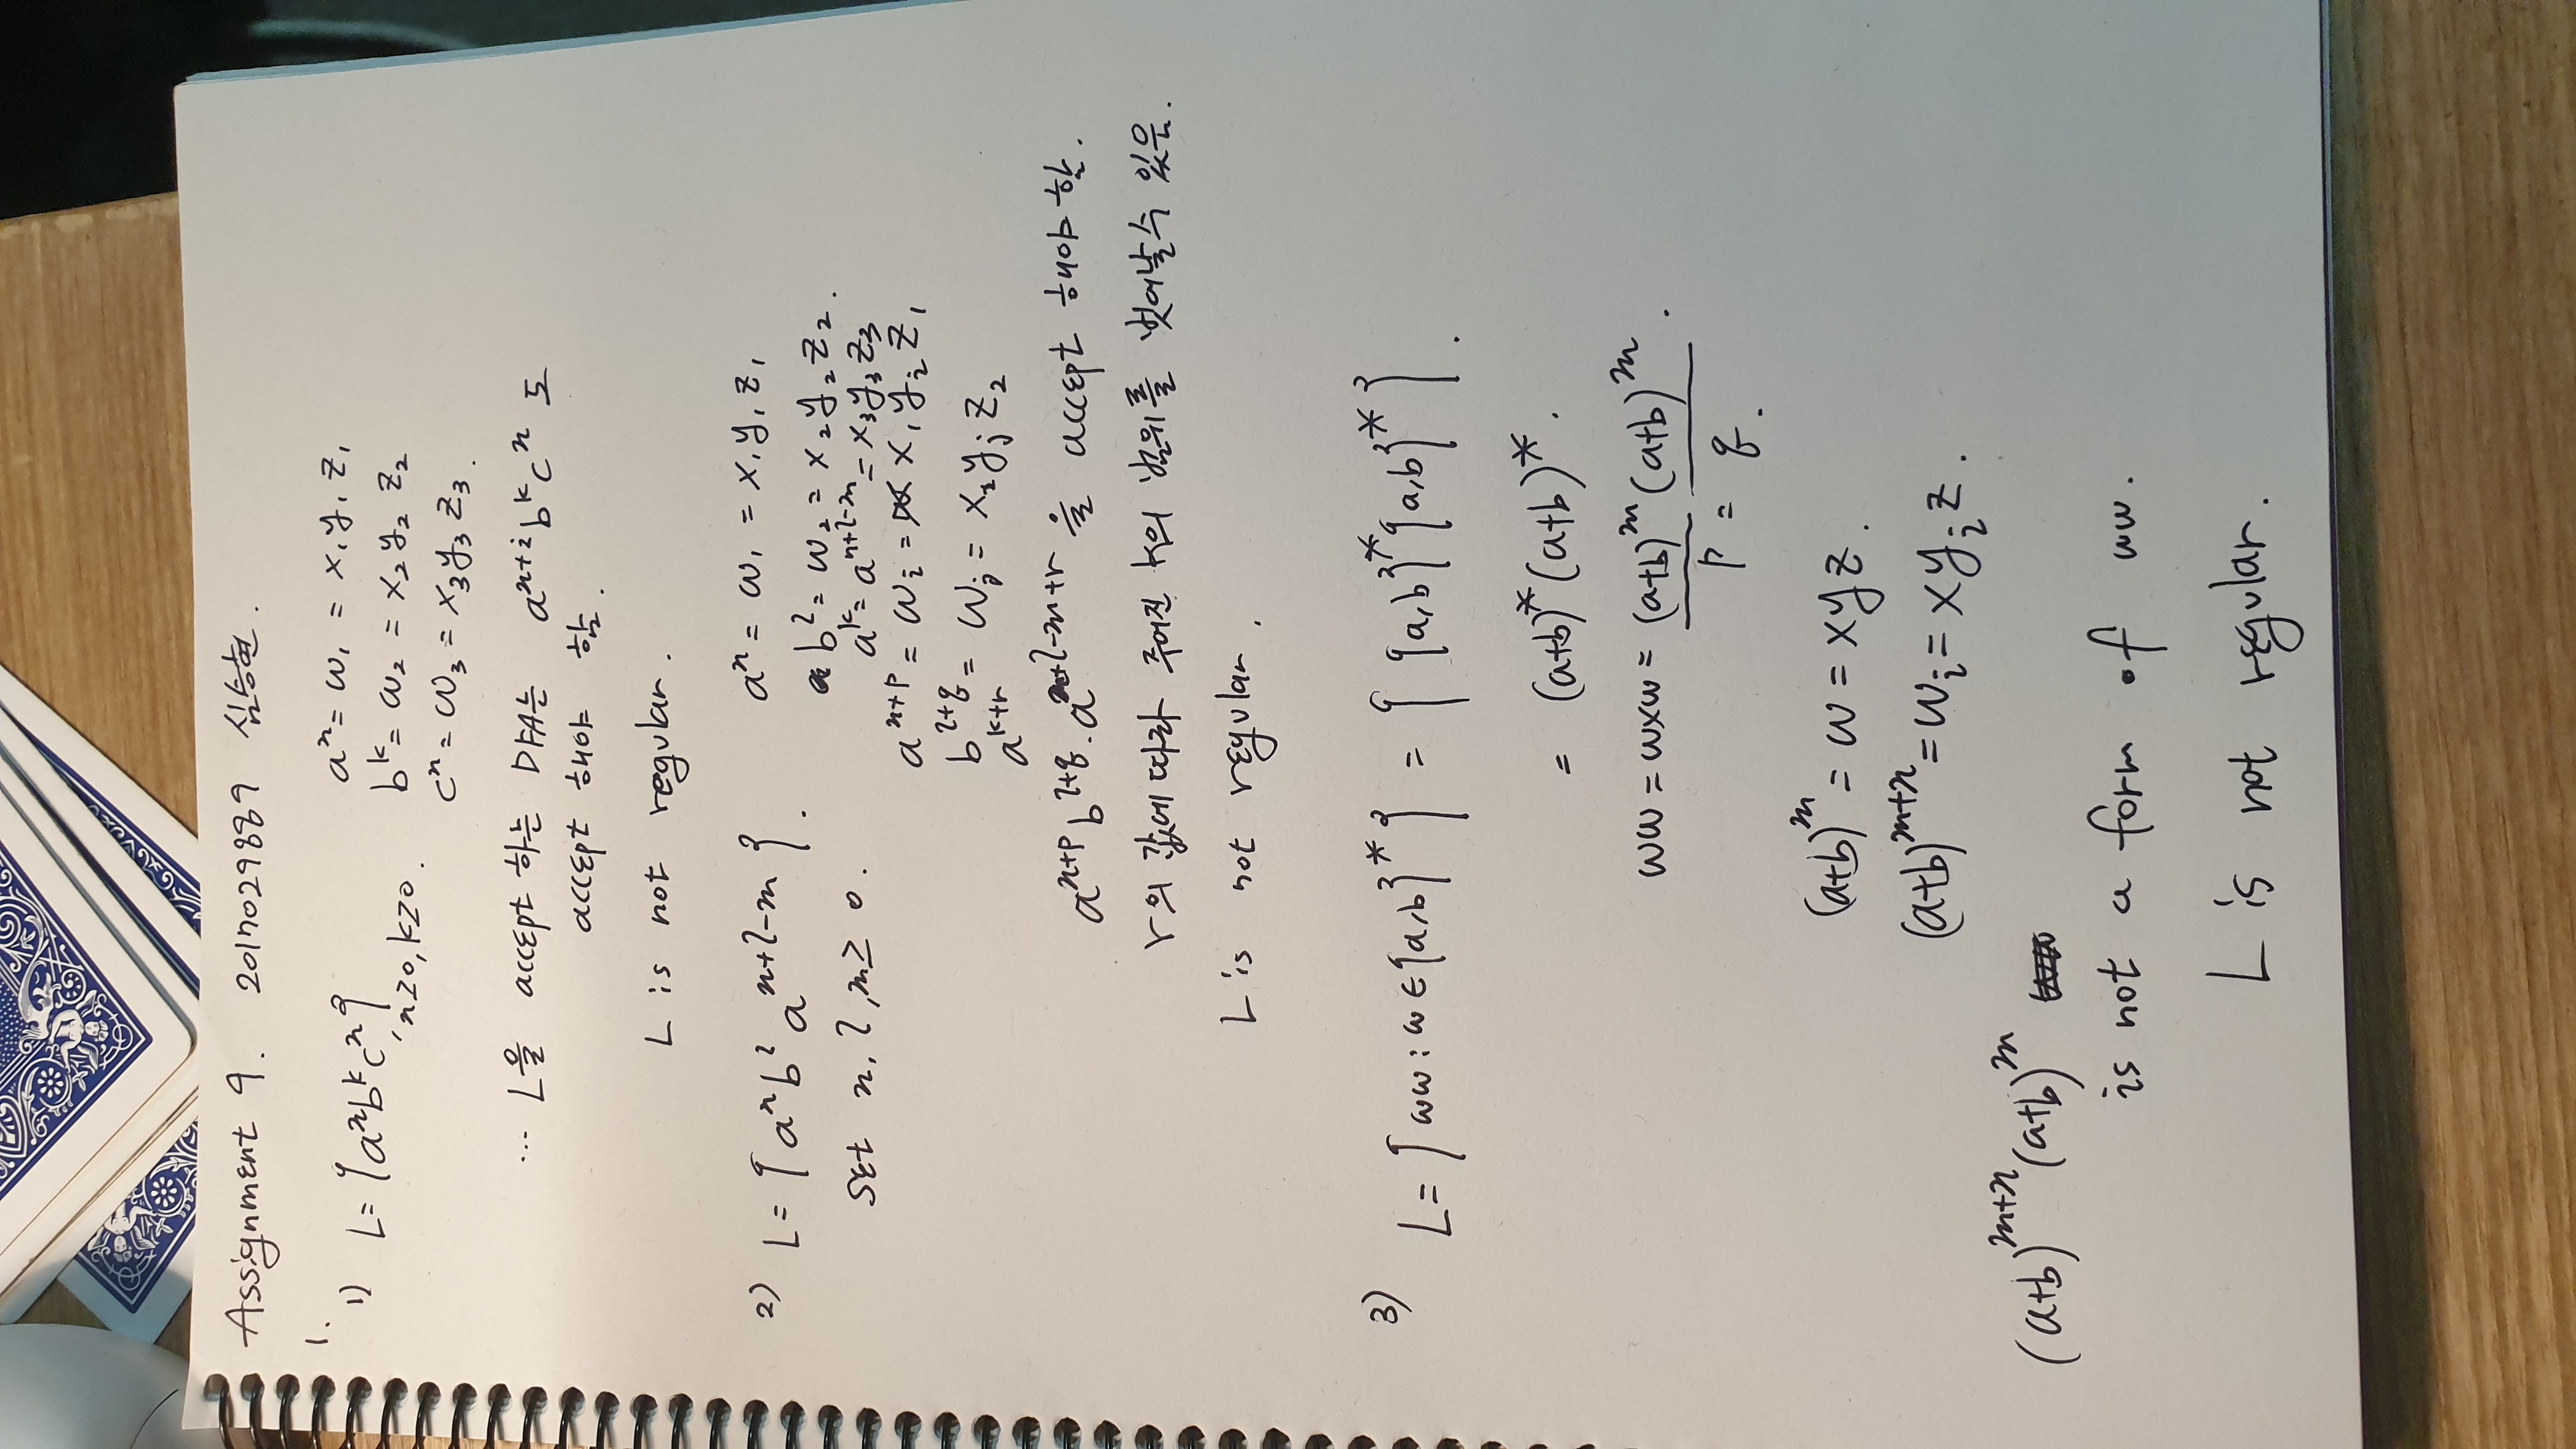 Assignment 9. 2017029889 심승현.
1.
1) L= {aⁿbᵏcⁿ} , n≥0, k≥0.
aⁿ = ω₁ = x₁y₁z₁
bᵏ = ω₂ = x₂y₂z₂
cⁿ = ω₃ = x₃y₃z₃.
... L을 accept 하는 DFA는 aⁿ⁺ⁱbᵏcⁿ 도
accept 해야 함.
L is not regular.
2) L= {aⁿbˡa^(n+l-m)}.
set n, l, m ≥ 0.
aⁿ = ω₁ = x₁y₁z₁
bˡ = ω₂ = x₂y₂z₂.
aᵏ = a^(n+l-m) = x₃y₃z₃
a^(n+p) = ωᵢ = x₁yᵢz₁
b^(l+q) = ωⱼ = x₂yⱼz₂
a^(k+r)
a^(n+p) b^(l+q) . a^(n+l-m+r) 을 accept 해야 함.
r의 값에 따라 주어진 k의 범위를 벗어날수 있음.
L is not regular.
3) L= {ωω : ω ∈ {a,b}*} = { {a,b}*{a,b}* }.
= (a+b)*(a+b)*.
ωω = ω×ω = (a+b)ᵐ(a+b)ᵐ.
p = q.
(a+b)ᵐ = ω = xyz.
(a+b)^(m+n) = ωᵢ = xyᵢz.
(a+b)^(m+n)(a+b)ᵐ
is not a form of ωω.
L is not regular.